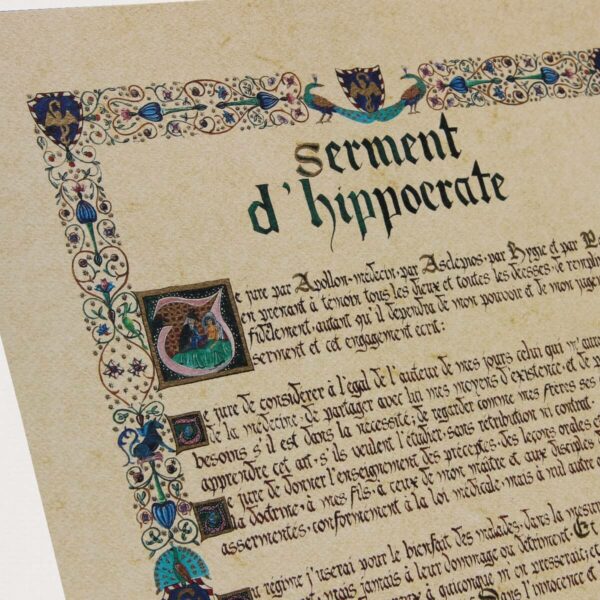 Serment
d'hippocrate
Je jure par Apollon-médecin, par Asclépios, par Hygie et par
en prenant à témoin tous les dieux et toutes les déesses, de remplir
fidèlement, autant qu'il dépendra de mon pouvoir et de mon
serment et cet engagement écrit:
Je jure de considérer à l'égal de l'auteur de mes jours celui qui
de la médecine, de partager avec lui mes moyens d'existence, et de
besoins s'il est dans la nécessité; de regarder comme mes frères ses
apprendre cet art, s'ils veulent l'étudier, sans rétribution ni contrat.
Je jure de donner l'enseignement des préceptes, des leçons orales et
la doctrine, à mes fils, à ceux de mon maître et aux disciples
assermentés, conformément à la loi médicale, mais à nul autre
régime j'userai pour le bienfait des malades, dans la
mais jamais à leur dommage ou détriment. Et
à quiconque m'en presserait;
Dans l'innocence et